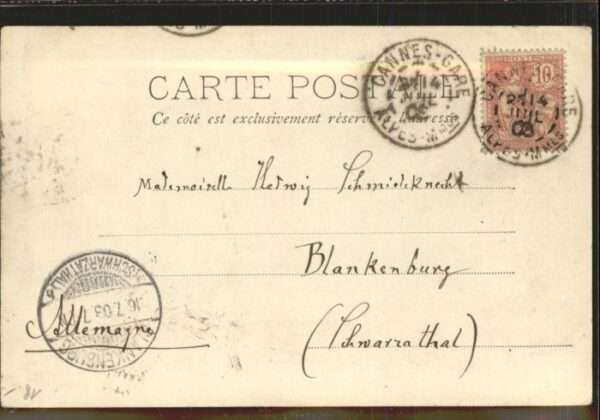 CARTE POSTALE
Ce côté est exclusivement réservé à l'adresse
CANNES-GARE
14
JUIL
03
ALPES-MMES
10
CANNES-GARE
14
JUIL
03
ALPES-MMES
Mademoiselle Hedwig Schmiedeknecht
Blankenburg
(Schwarzathal)
Allemagne
BLANKENBURG
(SCHWARZATHAL)
16.7.03.7